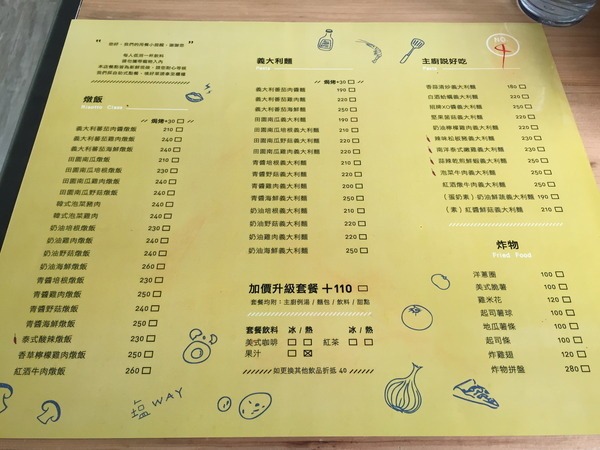 燉飯
Risotto Class
焗烤+30
義大利蕃茄肉醬燉飯 210
義大利蕃茄雞肉燉飯 240
義大利蕃茄海鮮燉飯 240
田園南瓜燉飯 210
田園南瓜培根燉飯 230
田園南瓜雞肉燉飯 240
田園南瓜野菇燉飯 240
韓式泡菜豬肉 240
韓式泡菜雞肉 240
奶油培根燉飯 230
奶油雞肉燉飯 240
奶油野菇燉飯 240
奶油海鮮燉飯 260
青醬培根燉飯 230
青醬雞肉燉飯 250
青醬野菇燉飯 240
青醬海鮮燉飯 250
泰式酸辣燉飯 230
香草檸檬雞肉燉飯 250
紅酒牛肉燉飯 260
義大利麵
Pasta
焗烤+30
義大利蕃茄肉醬麵 190
義大利蕃茄雞肉麵 220
義大利蕃茄海鮮麵 250
田園南瓜義大利麵 190
田園南瓜培根義大利麵 210
田園南瓜野菇義大利麵 220
田園南瓜雞肉義大利麵 220
青醬培根義大利麵 210
青醬野菇義大利麵 220
青醬雞肉義大利麵 200
青醬海鮮義大利麵 250
奶油培根義大利麵 210
奶油雞肉義大利麵 220
奶油野菇義大利麵 220
奶油海鮮義大利麵 250
加價升級套餐 +110
套餐均附:主廚例湯/麵包/飲料/甜點
套餐飲料 冰/熱 冰/熱
美式咖啡 紅茶
果汁
如更換其他飲品折抵 40
主廚說好吃
Pasta
NO
4
香蒜清炒義大利麵 180
白酒蛤蠣義大利麵 220
招牌XO醬義大利麵 250
堅果菌菇義大利麵 220
奶油檸檬雞肉義大利麵 220
辣味松板豬義大利麵 230
南洋泰式嫩雞義大利麵 230
蒜辣乾煎鮮蝦義大利麵 250
泡菜牛肉義大利麵 250
紅酒燉牛肉義大利麵 250
(蛋奶素)奶油鮮蔬義大利麵 190
(素)紅醬鮮菇義大利麵 210
炸物
Fried Food
洋蔥圈 100
美式脆薯 100
雞米花 120
起司薯球 100
地瓜薯條 100
起司條 100
炸雞翅 120
炸物拼盤 280
塩WAY